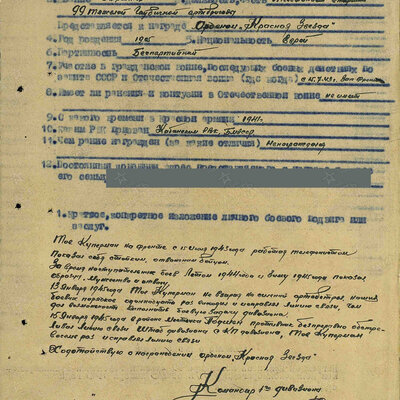 99 тяжелой гаубичной артбригады
Представляется к награде Орденом "Красная Звезда"
4. Год рождения 1925 5. Национальность Еврей
6. Партийность Беспартийный
7. Участие в гражданской войне, последующих боевых действиях по
защите СССР и Отечественной войне (где когда) с 15.7.43г.
8. Имеет ли ранения и контузии в Отечественной войне не имеет
9. С какого времени в Красной армии 1941г.
10. Каким РВК призван РВК,
11. Чем ранее награжден (за какие отличия) Не награжден
12. Постоянный домашний адрес
его семьи
1. Краткое, конкретное изложение личного боевого подвига или
заслуг.
Тов. Куперман на фронте с июля 1943 года работая телефонистом
Показал себя стойким, отважным бойцом.
За время наступательных боев Летом 1944 года и зиму 1945 года показал
образцы мужества и отваги.
13 Января 1945 года Тов. Куперман не взирая на сильный артобстрел, наших
боевых порядков одиннадцать раз выходил и исправлял линию связи, чем
дал возможность выполнить боевую задачу дивизиона.
15 Января 1945 года в районе противник беспрерывно обстре-
ливал линию связи Штаб дивизиона - КП дивизиона, Тов. Куперман
восемь раз исправлял линию связи
Ходатайствую о награждении орденом "Красная Звезда"
Командир 1го дивизиона